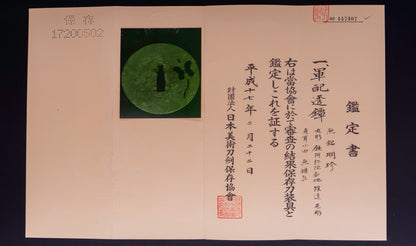 鑑定書
一、軍配透鐔
無銘 明珍
右は當協會に於て審査の結果保存刀装具と
鑑定しこれを証する
平成十七年二月二十二日
財団法人 日本美術刀剣保存協會
保存
17200502